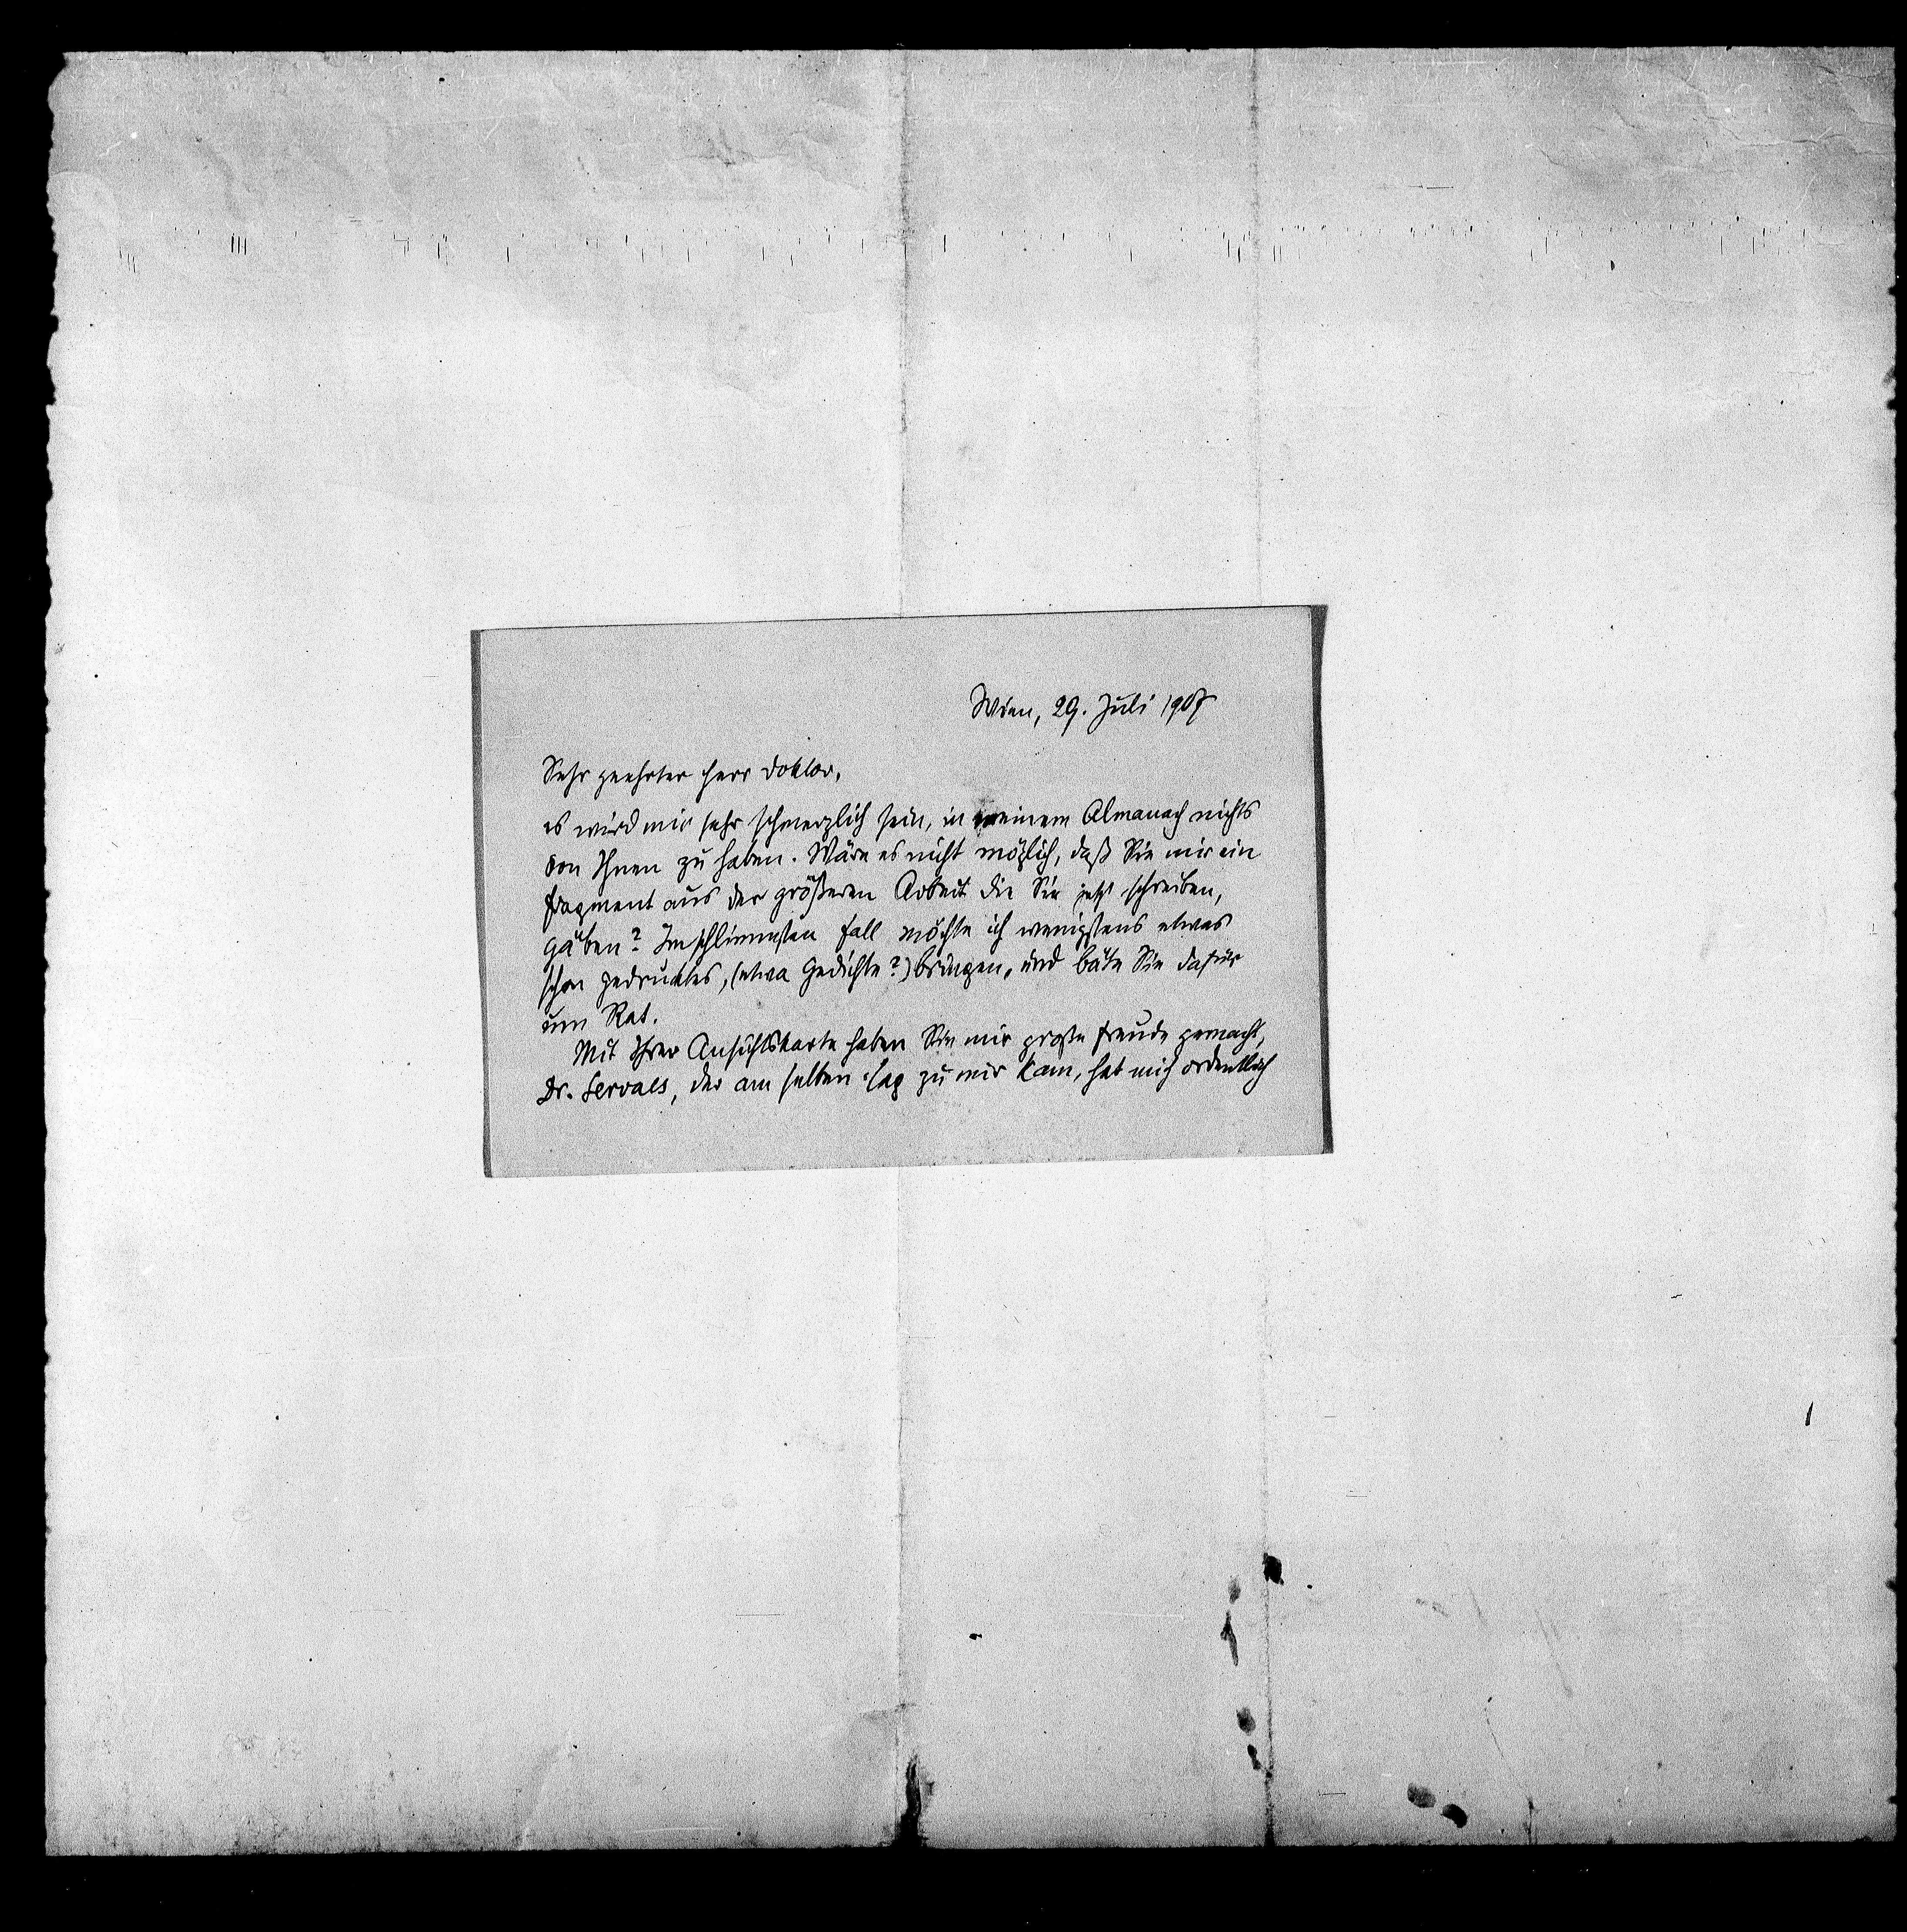 Wien, 29. Juli 1907
Sehr geehrter Herr Doktor,
es wird mir sehr schmerzlich sein, in meinem Almanach nichts
von Ihnen zu haben. Wäre es nicht möglich, daß Sie mir ein
Fragment aus der größeren Arbeit die Sie jetzt schreiben,
gäben? Im schlimmsten Fall möchte ich wenigstens etwas
schon gedrucktes, (etwa Gedichte?) bringen, und bäte Sie dafür
um Rat.
Mit Ihrer Ansichtskarte haben Sie mir große Freude gemacht,
Dr. Servaes, der am selben Tag zu mir kam, hat mich ordentlich